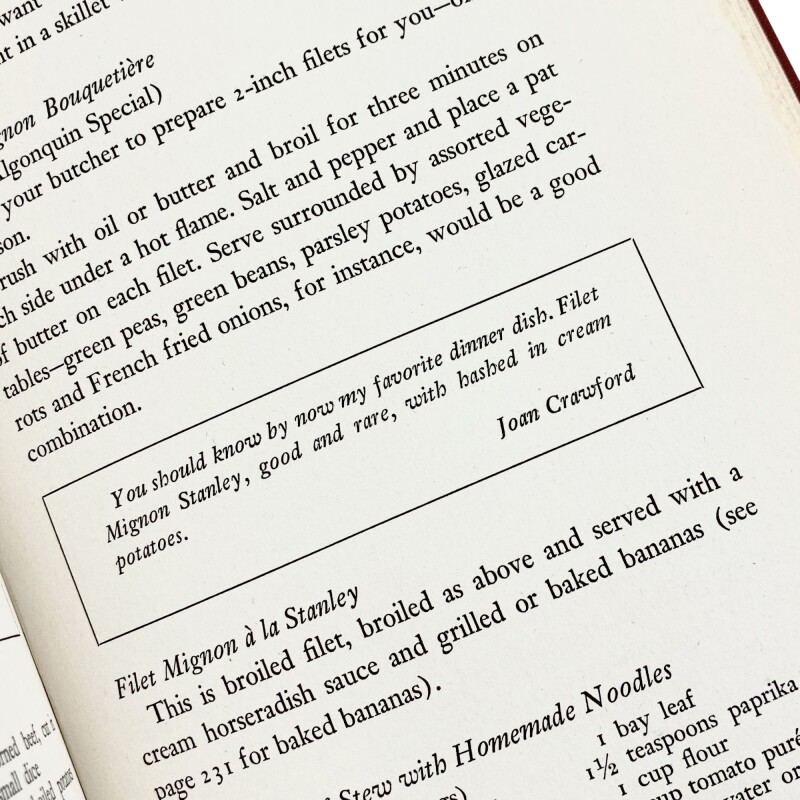 want
nt in a skillet
non Bouquetière
lgonquin Special)
your butcher to prepare 2-inch filets for you—
son.
rush with oil or butter and broil for three minutes on
ch side under a hot flame. Salt and pepper and place a pat
of butter on each filet. Serve surrounded by assorted vege-
tables—green peas, green beans, parsley potatoes, glazed car-
rots and French fried onions, for instance, would be a good
combination.
You should know by now my favorite dinner dish. Filet
Mignon Stanley, good and rare, with hashed in cream
potatoes.
Joan Crawford
Filet Mignon à la Stanley
This is broiled filet, broiled as above and served with a
cream horseradish sauce and grilled or baked bananas (see
page 231 for baked bananas).
Stew with Homemade Noodles
1 bay leaf
1½ teaspoons paprika
1 cup flour
up tomato puré
water or
rned beef, cut
small dice
boiled potatoe